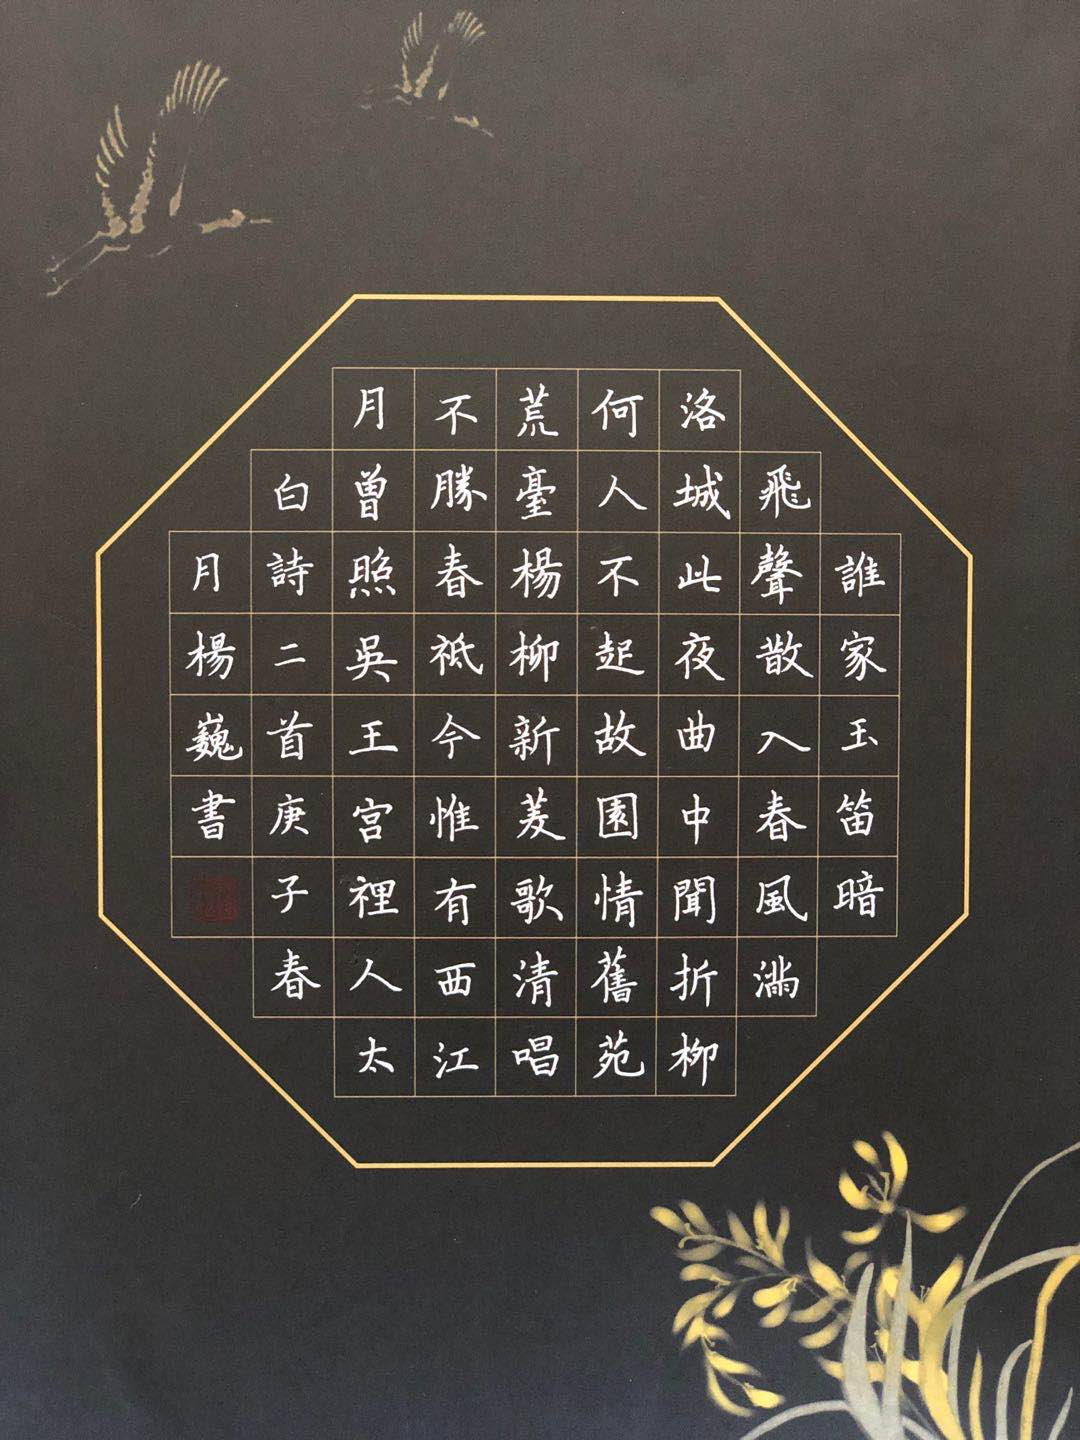 誰家玉笛暗
飛聲散入春風滿
洛城此夜曲中聞折柳
何人不起故園情舊苑
荒臺楊柳新菱歌清唱
不勝春祗今惟有西江
月曾照吳王宮裡人太
白詩二首庚子春
月楊巍書